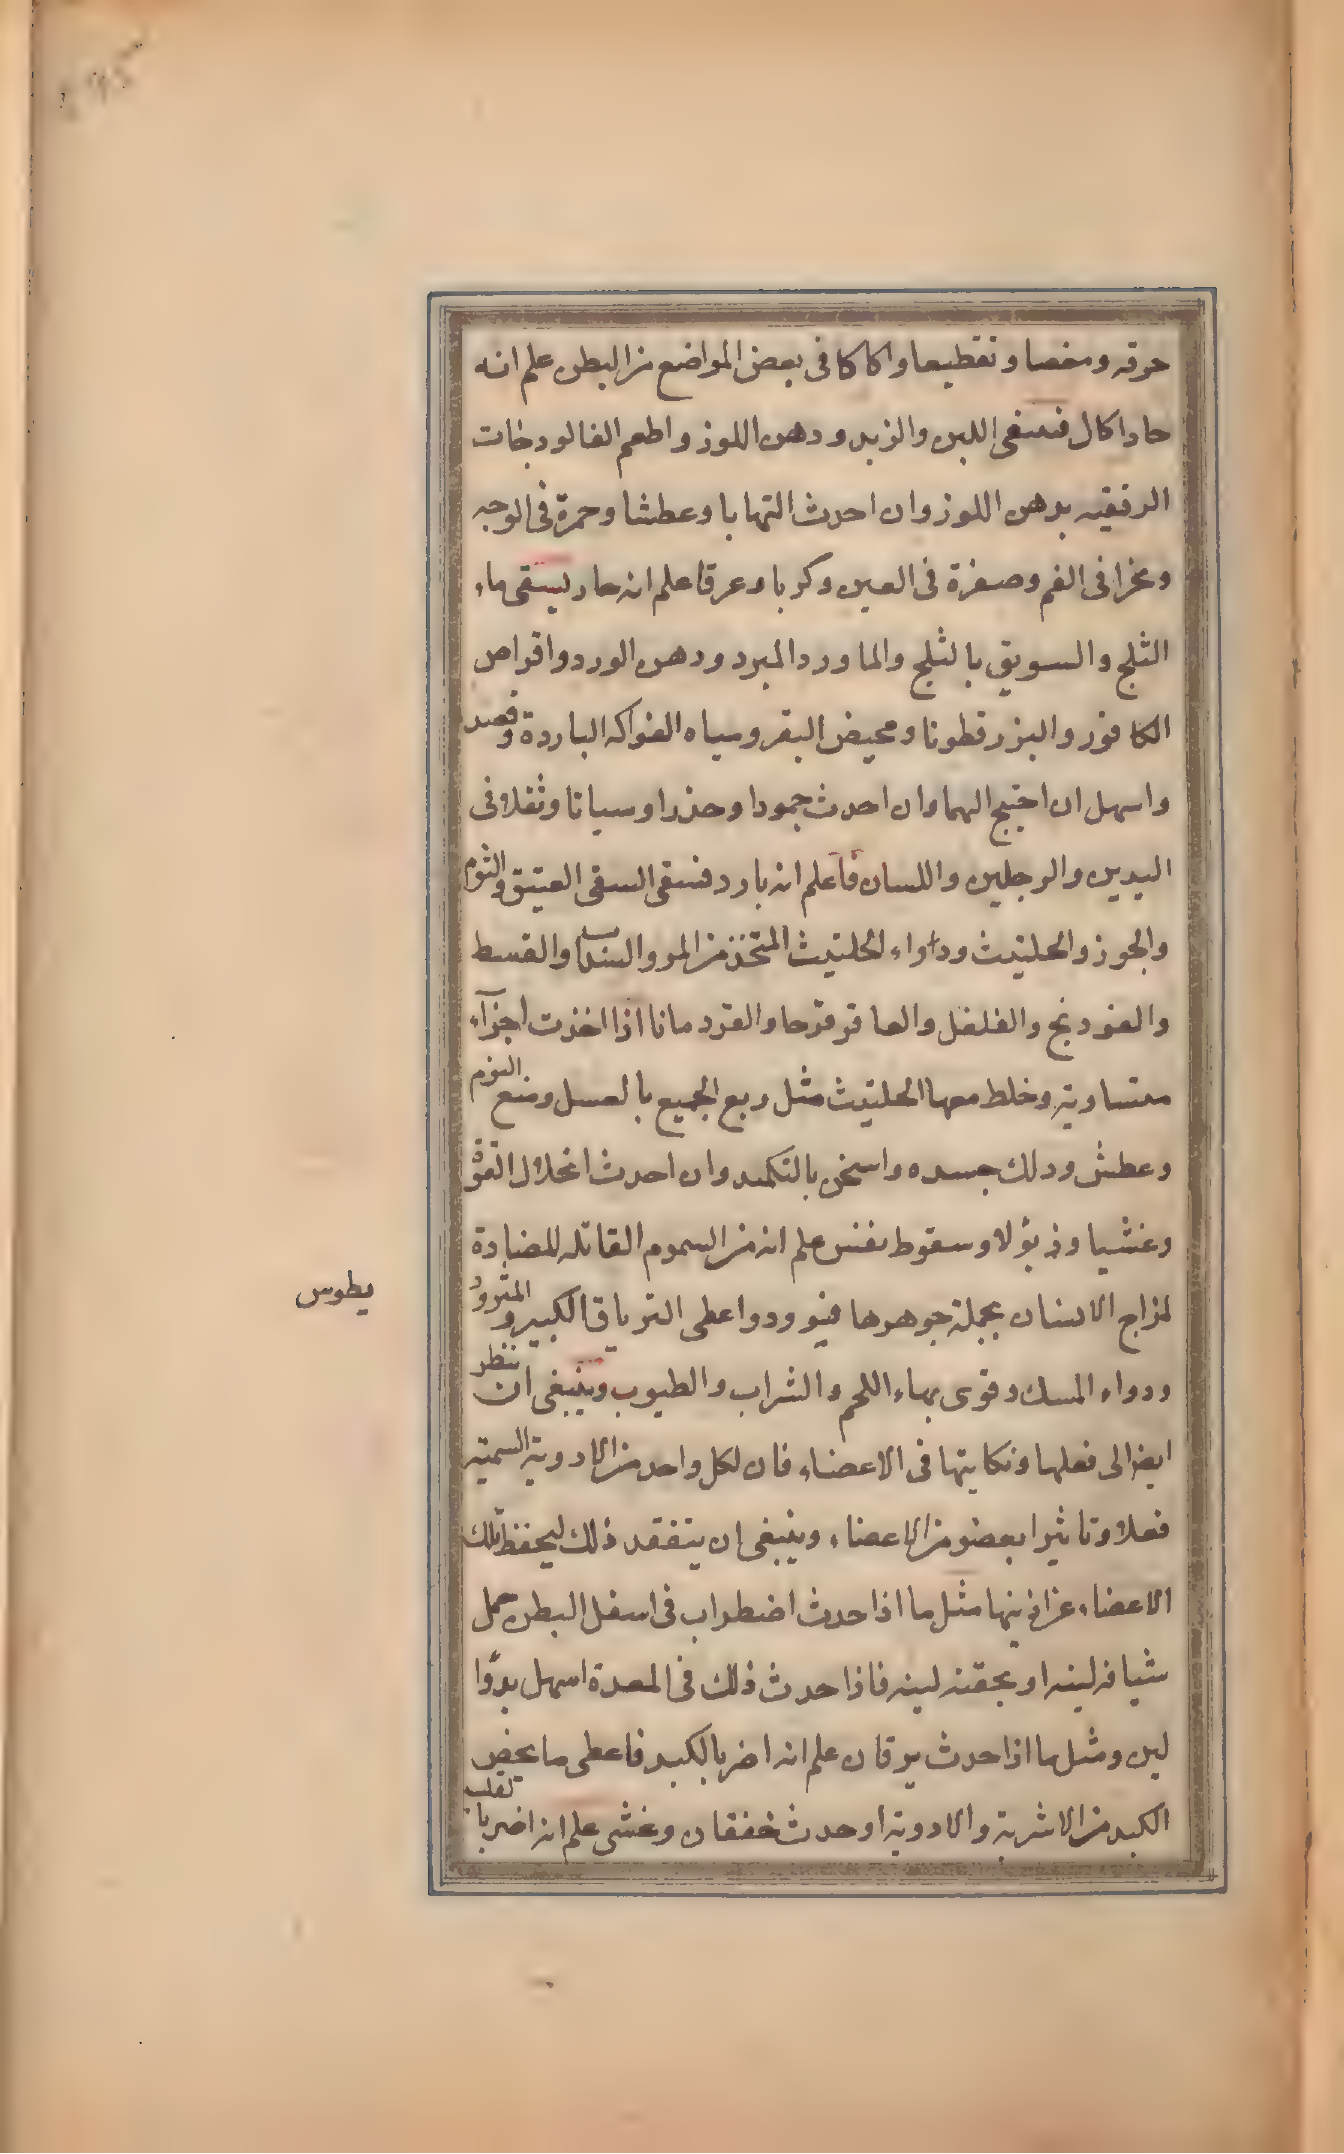 حرقه ومغصا وتقطيعا واكالا فى بعض المواضع من البطن علم انه
حاد اكال فيسقى اللبن والزبد ودهن اللوز واطعم الفالوذجات
الرقيقه بدهن اللوز وان احدث التهابا وعطشا وحمرة فى الوجه
وبخرا فى الفم وصفرة فى العين وكربا وعرقا علم انه حار ليسقى ماء
الثلج والسويق بالثلج والماورد المبرد ودهن الورد واقراص
الكافور والبزرقطونا ومخيض البقر ومياه الفواكه الباردة وفصد
واسهل ان احتيج اليهما وان احدث جمودا وخدرا وسباتا وثقلا فى
اليدين والرجلين واللسان فاعلم انه بارد فسقى العتيق والثوم
والجوز والحلتيث ودواء الحلتيث المتخذ من المر والسنداب والقسط
والفودنج والفلفل والعاقرقرحا والقردمانا اذا اخذت اجزآء
متساوية وخلط معها الحلتيث مثل ربع الجميع بالعسل ومنع النوم
وعطش ودلك جسده واسخن بالتكميد وان احدث انحلال القوة
وغشيا وذبولا وسقوط نفس علم انه من السموم القاتله المضادة
لمزاج الانسان بجملة جوهرها فيودود واعطى الترياق الكبير والمثرود
يطوس
ودواء المسك وقوى بماء اللحم والشراب والطيوب وينبغى ان ننظر
ايضا الى فعلها ونكايتها فى الاعضاء فان لكل واحد من الادوية السمية
فعلا وتاثيرا بعضو من الاعضاء وينبغى ان يتفقد ذلك ليحفظ تلك
الاعضاء عن اذيتها مثل ما اذا حدث اضطراب فى اسفل البطن حمل
شيافه لينه او بحقنه لينه فاذا حدث ذلك فى المعدة اسهل بدوا
لين ومثل ما اذا حدث يرقان علم انه اضر بالكبد فاعطى ما يخص
الكبد من الاشربة والادوية او حدث خفقان وغشى علم انه اضر بالقلب